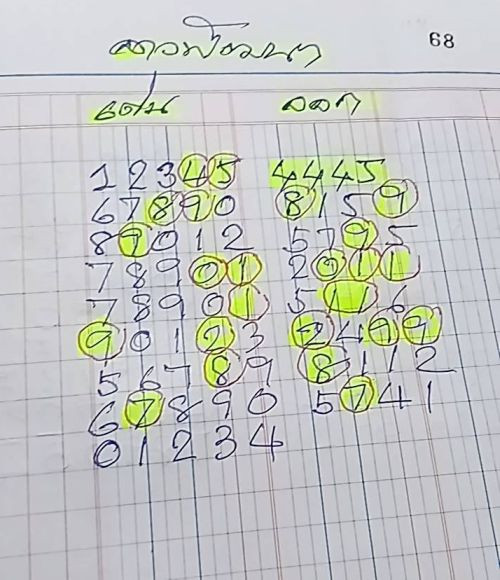 68
ลาวพัฒนา
เด่น ออก
1 2 3 4 5 4 4 4 5
6 7 8 9 0 8 1 5 9
8 9 0 1 2 5 7 9 5
7 8 9 0 1 2 0 1 1
7 8 9 0 1 5 1 1 6
9 0 1 2 3 2 4 9 9
5 6 7 8 9 8 1 1 2
6 7 8 9 0 5 7 4 1
0 1 2 3 4